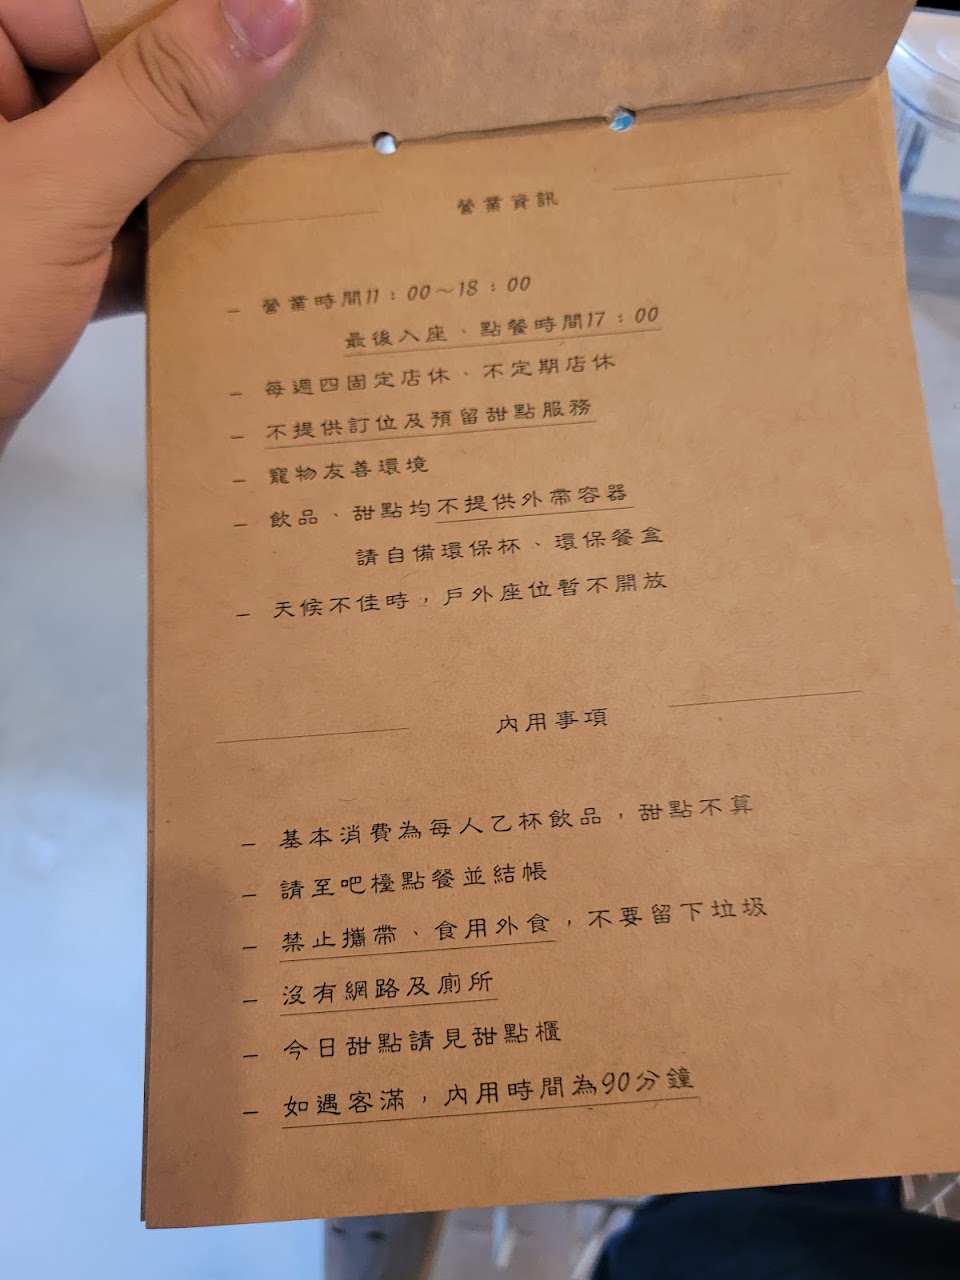 營業資訊
– 營業時間11：00～18：00
最後入座、點餐時間17：00
– 每週四固定店休、不定期店休
– 不提供訂位及預留甜點服務
– 寵物友善環境
– 飲品、甜點均不提供外帶容器
請自備環保杯、環保餐盒
– 天候不佳時，戶外座位暫不開放
內用事項
– 基本消費為每人乙杯飲品，甜點不算
– 請至吧檯點餐並結帳
– 禁止攜帶、食用外食，不要留下垃圾
– 沒有網路及廁所
– 今日甜點請見甜點櫃
– 如遇客滿，內用時間為90分鐘